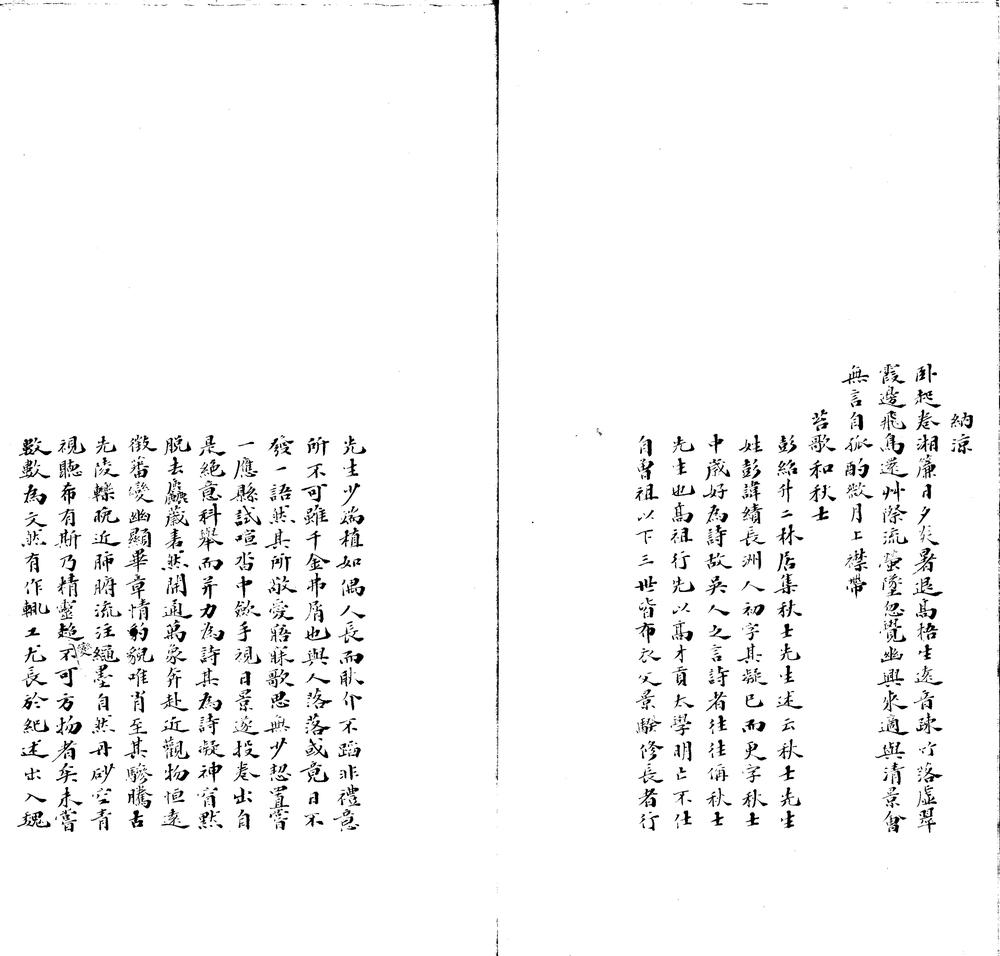 納涼
卧起卷湘簾日夕炎暑退高梧生遠音疎竹落虛翠
霞邊飛鳥還艸際流螢墮忽覺幽興來適與清景會
無言自孤酌微月上襟帶
苔歌和秋士
彭紹升二林居集秋士先生述云秋士先生
姓彭諱績長洲人初字其凝已而更字秋士
中歲好為詩故吳人之言詩者往往偁秋士
先生也高祖行先以高才貢太學明亡不仕
自曾祖以下三世皆布衣父景騄修長者行
先生少端植如偶人長而耿介不蹈非禮意
所不可雖千金弗屑也與人落落或竟日不
發一語然其所敬愛寤寐歌思無少恝置嘗
一應縣試喧呶中斂手視日景遂投卷出自
是絕意科舉而并力為詩其為詩凝神窅默
脫去麤薉砉然開通萬象奔赴近觀物恒遠
徵蕃變幽顯畢章情豹貌唯肖至其驂騰古
先陵轢晚近肺腑流注繩墨自然丹砂空青
視聽布有斯乃精靈超變不可方物者矣未嘗
數數為文然有作輒工尤長於紀述出入瑰